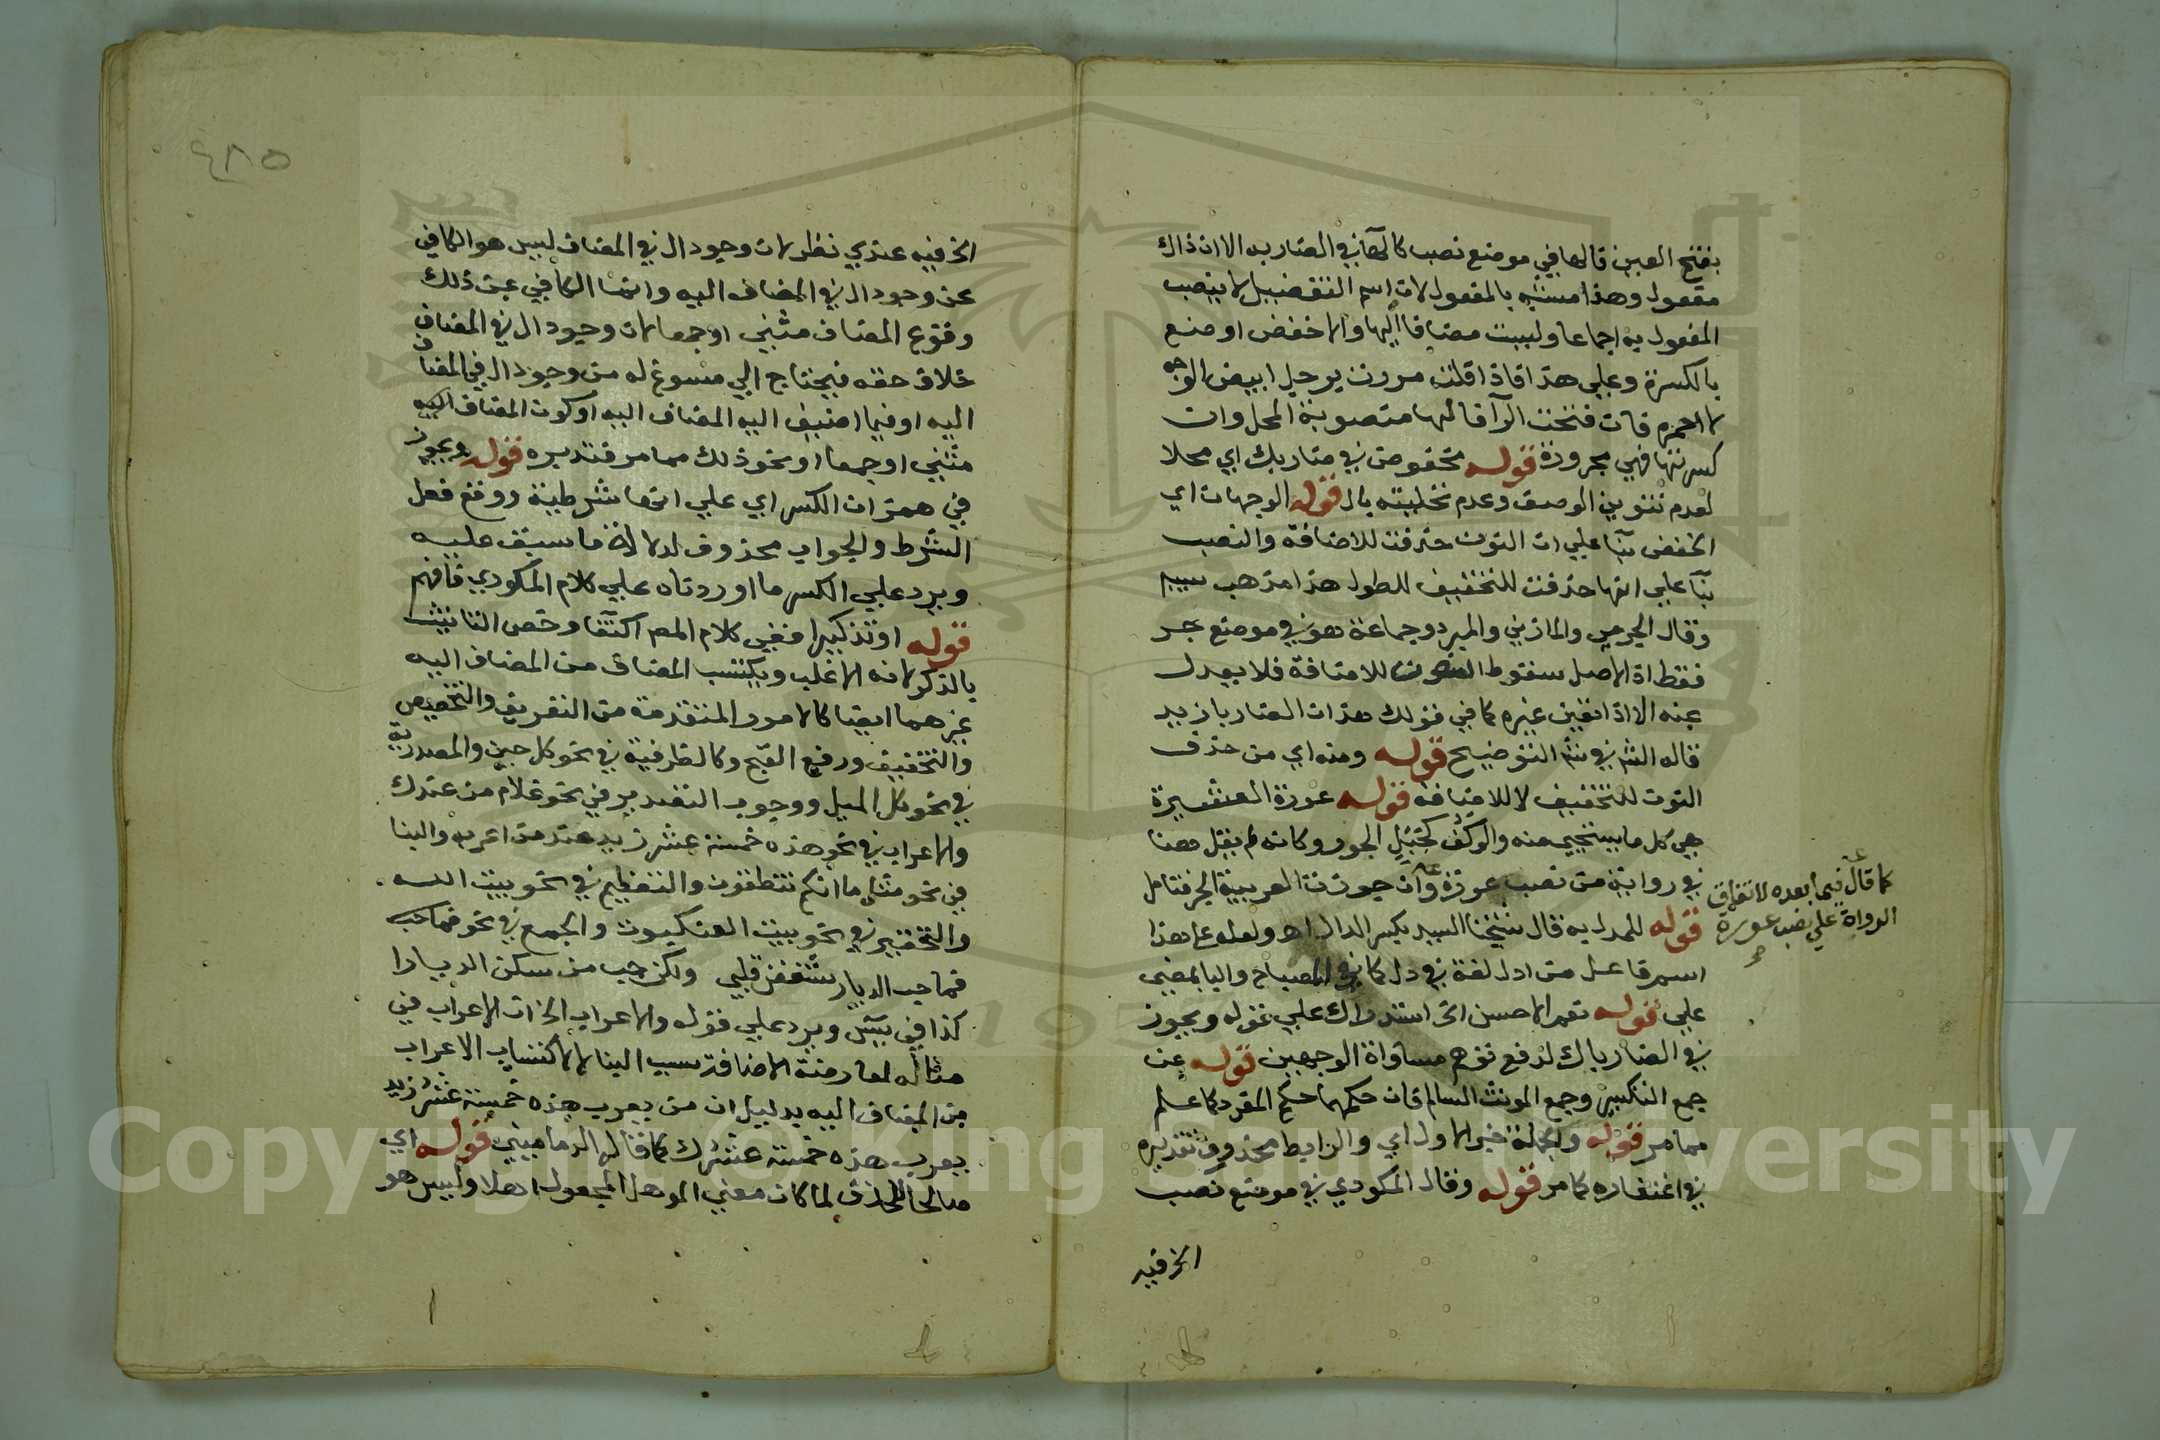 بفتح العين قالها في موضع نصب كالهآ في الضاربه الا ان ذاك
مفعول وهذا مشبه بالمفعول لان اسم التفضيل لا ينصب
المفعول به اجماعا وليست مضافا اليها والا خفض او صنع
بالكسرة وعلي هذا فاذا قلت مررت برجل ابيض الوجه
لا احمره فان فتحت الرآ فالها منصوبة المحل وان
كسرتها فهي مجرورة قوله مخفوض في ضاربك اي محلا
لعدم تنوين الوصف وعدم تحليته بال قوله الوجهان اي
الخفض بنآ علي ان النون حذفت للاضافة والنصب
بنآ علي انها حذفت للتخفيف للطول هذا مذهب سيبم
وقال الجرمي والمازني والمبرد وجماعة هو في موضع جر
فقط اذ الاصل سقوط النون للاضافة فلا يعدل
عنه الا اذا تعين غيره كما في قولك هذان الضاربا زيد
قاله الش في شم التوضيح قوله ومنه اي من حذف
النون للتخفيف لا للاضافة قوله عورة العشيرة
هي كل ما يستحيى منه والوكف كجبل الجور وكانه لم يقل هنا
في رواية من نصب عورة وان جوزت العربية الجر فتامل
كما قال فيما بعده لاتفاق
الرواة علي نصب عورة
قوله للمدل به قال شيخنا السيد بكسر الدال اه ولعله علي هذا
اسم فاعل من ادل لغة في دل كما في المصباح واليا بمعني
علي قوله نعم الاحسن الخ استدراك علي قوله ويجوز
في الضارباك لدفع توهم مساواة الوجهين قوله عن
جمع التكسير وجمع المونث السالم فان حكمهما حكم المفرد كما علم
مما مر قوله والجملة خبر الاول اي والرابط محذوف تقديره
في اغتفاره كما مر قوله وقال المكودي في موضع نصب
الخ فيه
٤٨٥
الخ فيه عندي نظر لان وجود ال في المضاف ليس هو الكافي
عن وجود ال في المضاف اليه وانما الكافي عن ذلك
وقوع المضاف مثني او جمعا لان وجود ال في المضاف
خلاف حقه فيحتاج الي مسوغ له من وجود ال في المضاف
اليه او فيما اضيف اليه المضاف اليه او كون المضاف اليه
مثني او جمعا او نحو ذلك مما مر فتدبره قوله ويجوز
في همز ان الكسر اي علي انها شرطية ووقع فعل
الشرط والجواب محذوف لدلالة ما سبق عليه
ويرد علي الكسر ما اوردناه علي كلام المكودي فافهم
قوله او تذكيرا ففي كلام المص اكتفآ وخص التانيث
بالذكر لانه الاغلب ويكتسب المضاف من المضاف اليه
غيرهما ايضا كالامور المتقدمة من التعريف والتخصيص
والتخفيف ورفع القبح وكالظرفية في نحو كل حين والمصدرية
في نحو كل الميل ووجوب التقديم في نحو غلام من عندك
والاعراب في نحو هذه خمسة عشر زيد عند من اعربه والبنا
في نحو مثل ما انكم تنطقون والتعظيم في نحو بيت الله
والتحقير في نحو بيت العنكبوت والجمع في نحو فما حب
فما حب الديار شغفن قلبي ولكن حب من سكن الديارا
كذا في يس ويرد علي قوله والاعراب الخ ان الاعراب في
مثاله لمعارضة الاضافة سبب البنا لا لاكتساب الاعراب
من المضاف اليه بدليل ان من يعرب هذه خمسة عشر زيد
يعرب هذه خمسة عشرك كما قاله الدماميني قوله اي
صالحا للحذف لما كان معني الموهل المجعول اهلا وليس هو